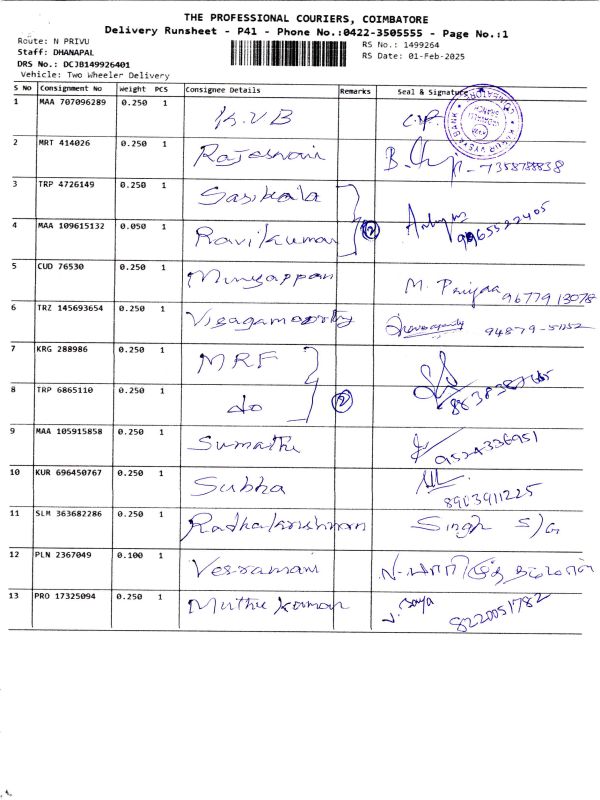 THE PROFESSIONAL COURIERS, COIMBATORE
Delivery Runsheet - P41 - Phone No.:0422-3505555 - Page No.:1
Route: N PRIVU
RS No.: 1499264
Staff: DHANAPAL
RS Date: 01-Feb-2025
DRS No.: DCJB149926401
Vehicle: Two Wheeler Delivery
S No Consignment No Weight PCS Consignee Details Remarks Seal & Signature
1 MAA 707096289 0.250 1 K.V.B
2 MRT 414026 0.250 1 7358788838
3 TRP 4726149 0.250 1 Sasikala
4 MAA 109615132 0.050 1 Ravikumar 2 9965522405
5 CUD 76530 0.250 1 M. Priyaa 96779 13078
6 TRZ 145693654 0.250 1 94879-51152
7 KRG 288986 0.250 1 MRF
8 TRP 6865110 0.250 1 do 2
9 MAA 105915858 0.250 1 Sumathi 9524336951
10 KUR 696450767 0.250 1 Subha 8903911225
11 SLM 363682286 0.250 1 Radhakrishnan Singh S/G
12 PLN 2367049 0.100 1
13 PRO 17325094 0.250 1 Muthukumar 8220051782